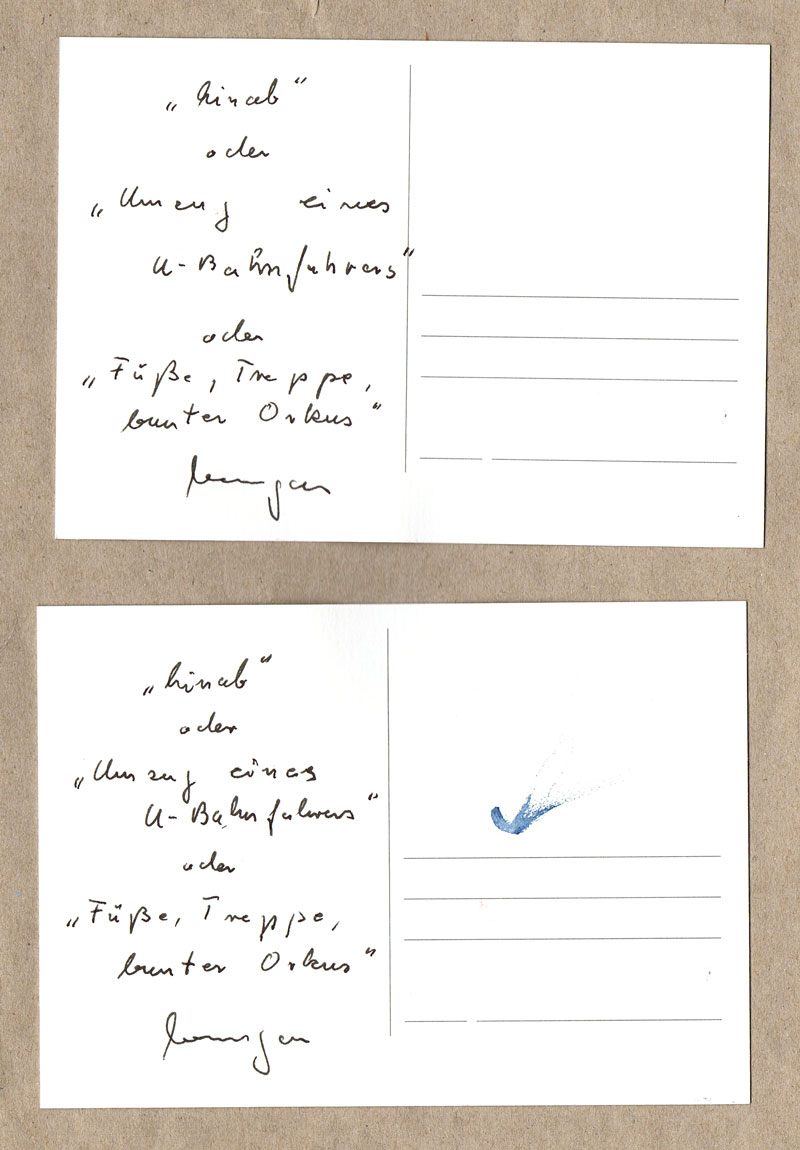 „hinab“
oder
„Umzug eines
U-Bahnfahrers“
oder
„Füße, Treppe,
bunter Orkus“
„hinab“
oder
„Umzug eines
U-Bahnfahrers“
oder
„Füße, Treppe,
bunter Orkus“